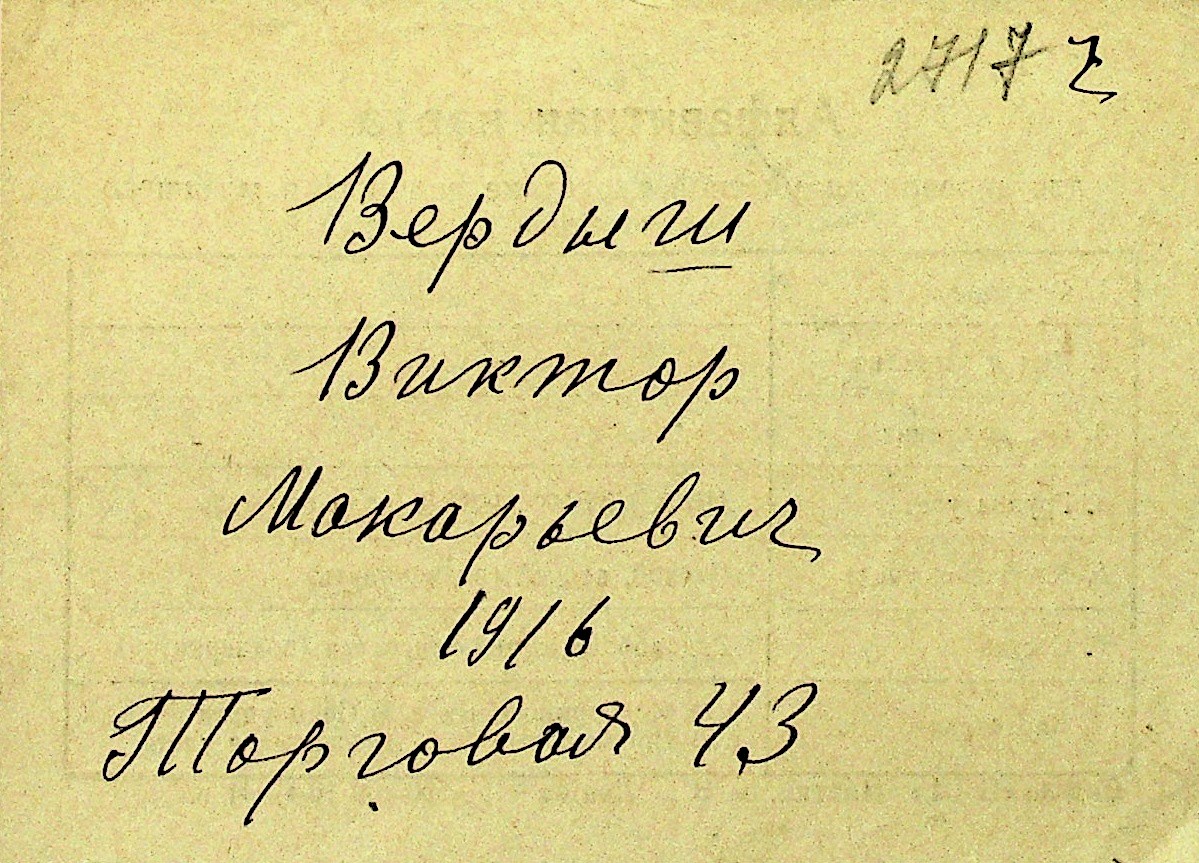 2717 ч
Вердыш
Виктор
Макарьевич
1916
Торговая 43